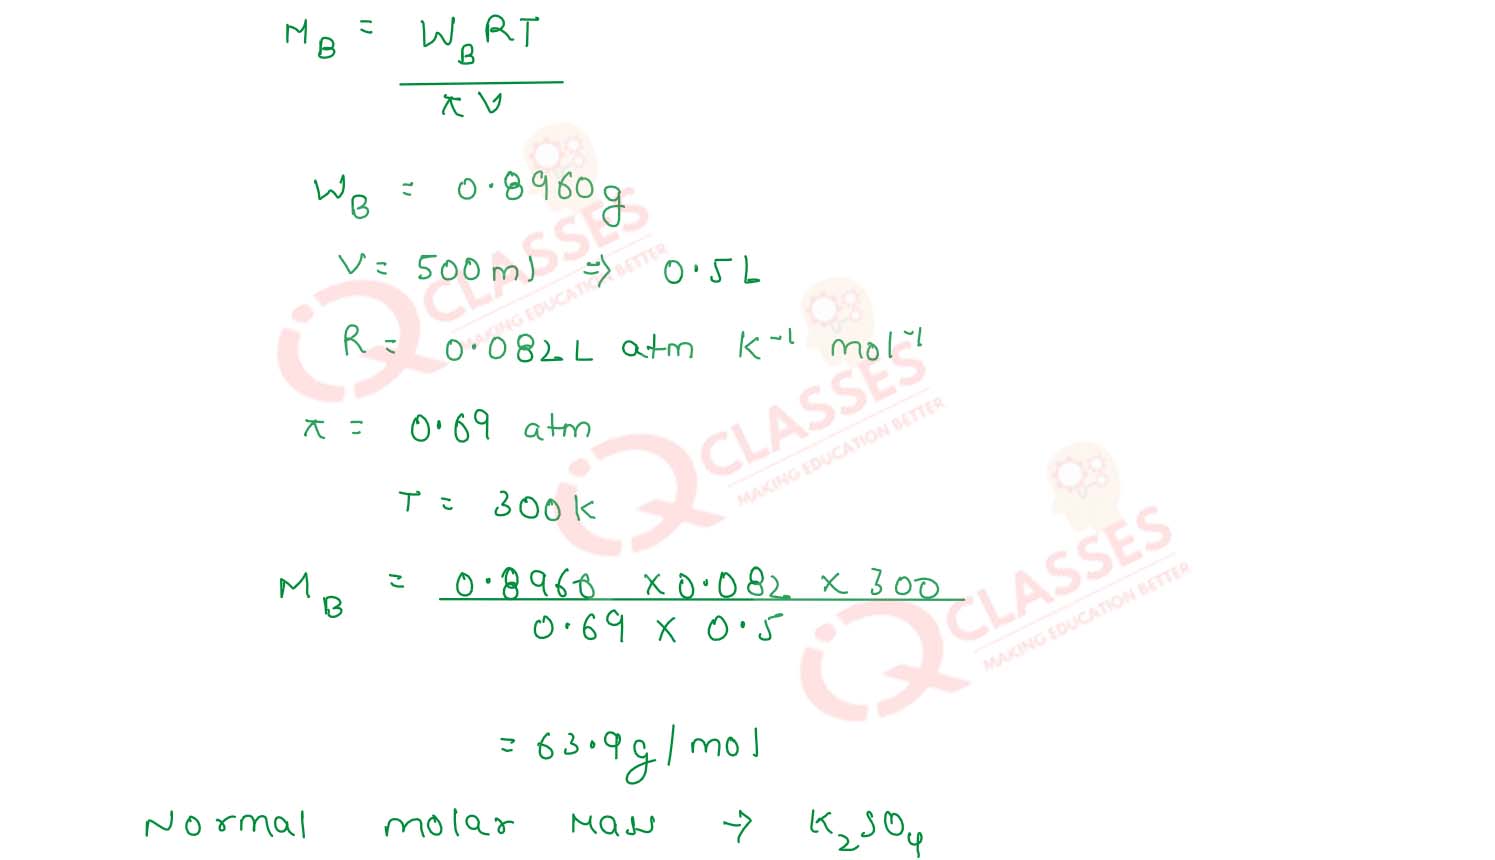 M_B = W_B RT
π V
W_B = 0.8960g
V = 500ml ⇒ 0.5L
R = 0.082L atm K⁻¹ mol⁻¹
π = 0.69 atm
T = 300k
M_B = 0.8960 x 0.082 x 300
0.69 x 0.5
= 63.9g/mol
Normal molar Mass → K₂SO₄
iQ CLASSES
MAKING EDUCATION BETTER
iQ CLASSES
MAKING EDUCATION BETTER
iQ CLASSES
MAKING EDUCATION BETTER